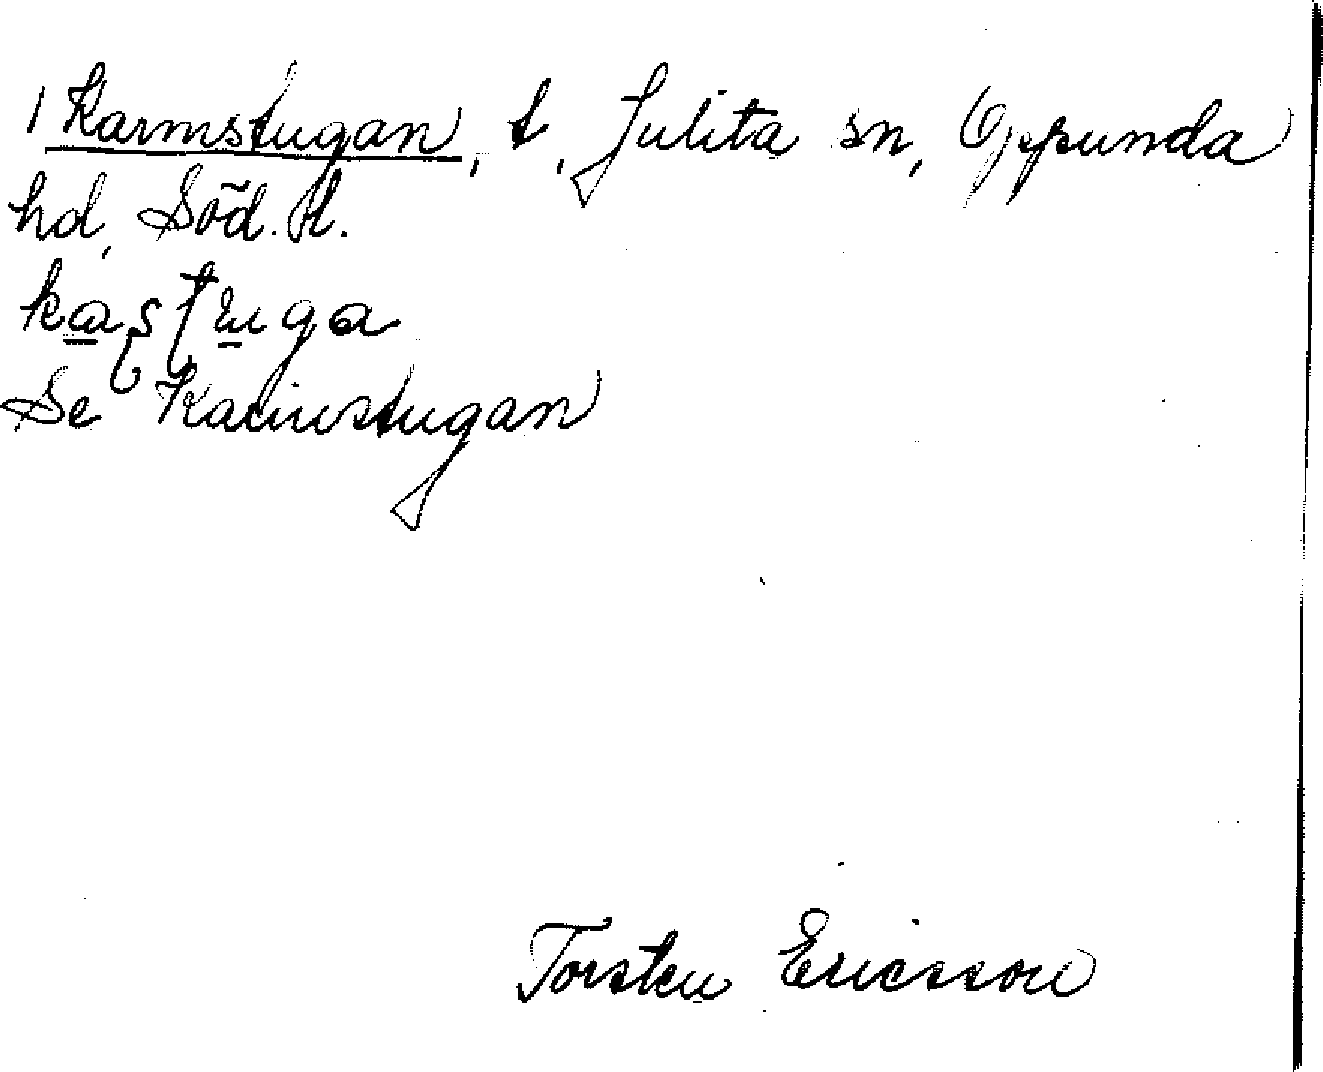 1 Karmstugan, t, Julita sn, Oppunda
hd, Söd. l.
kaʂʈuga
Se Karinstugan
Torsten Ericsson